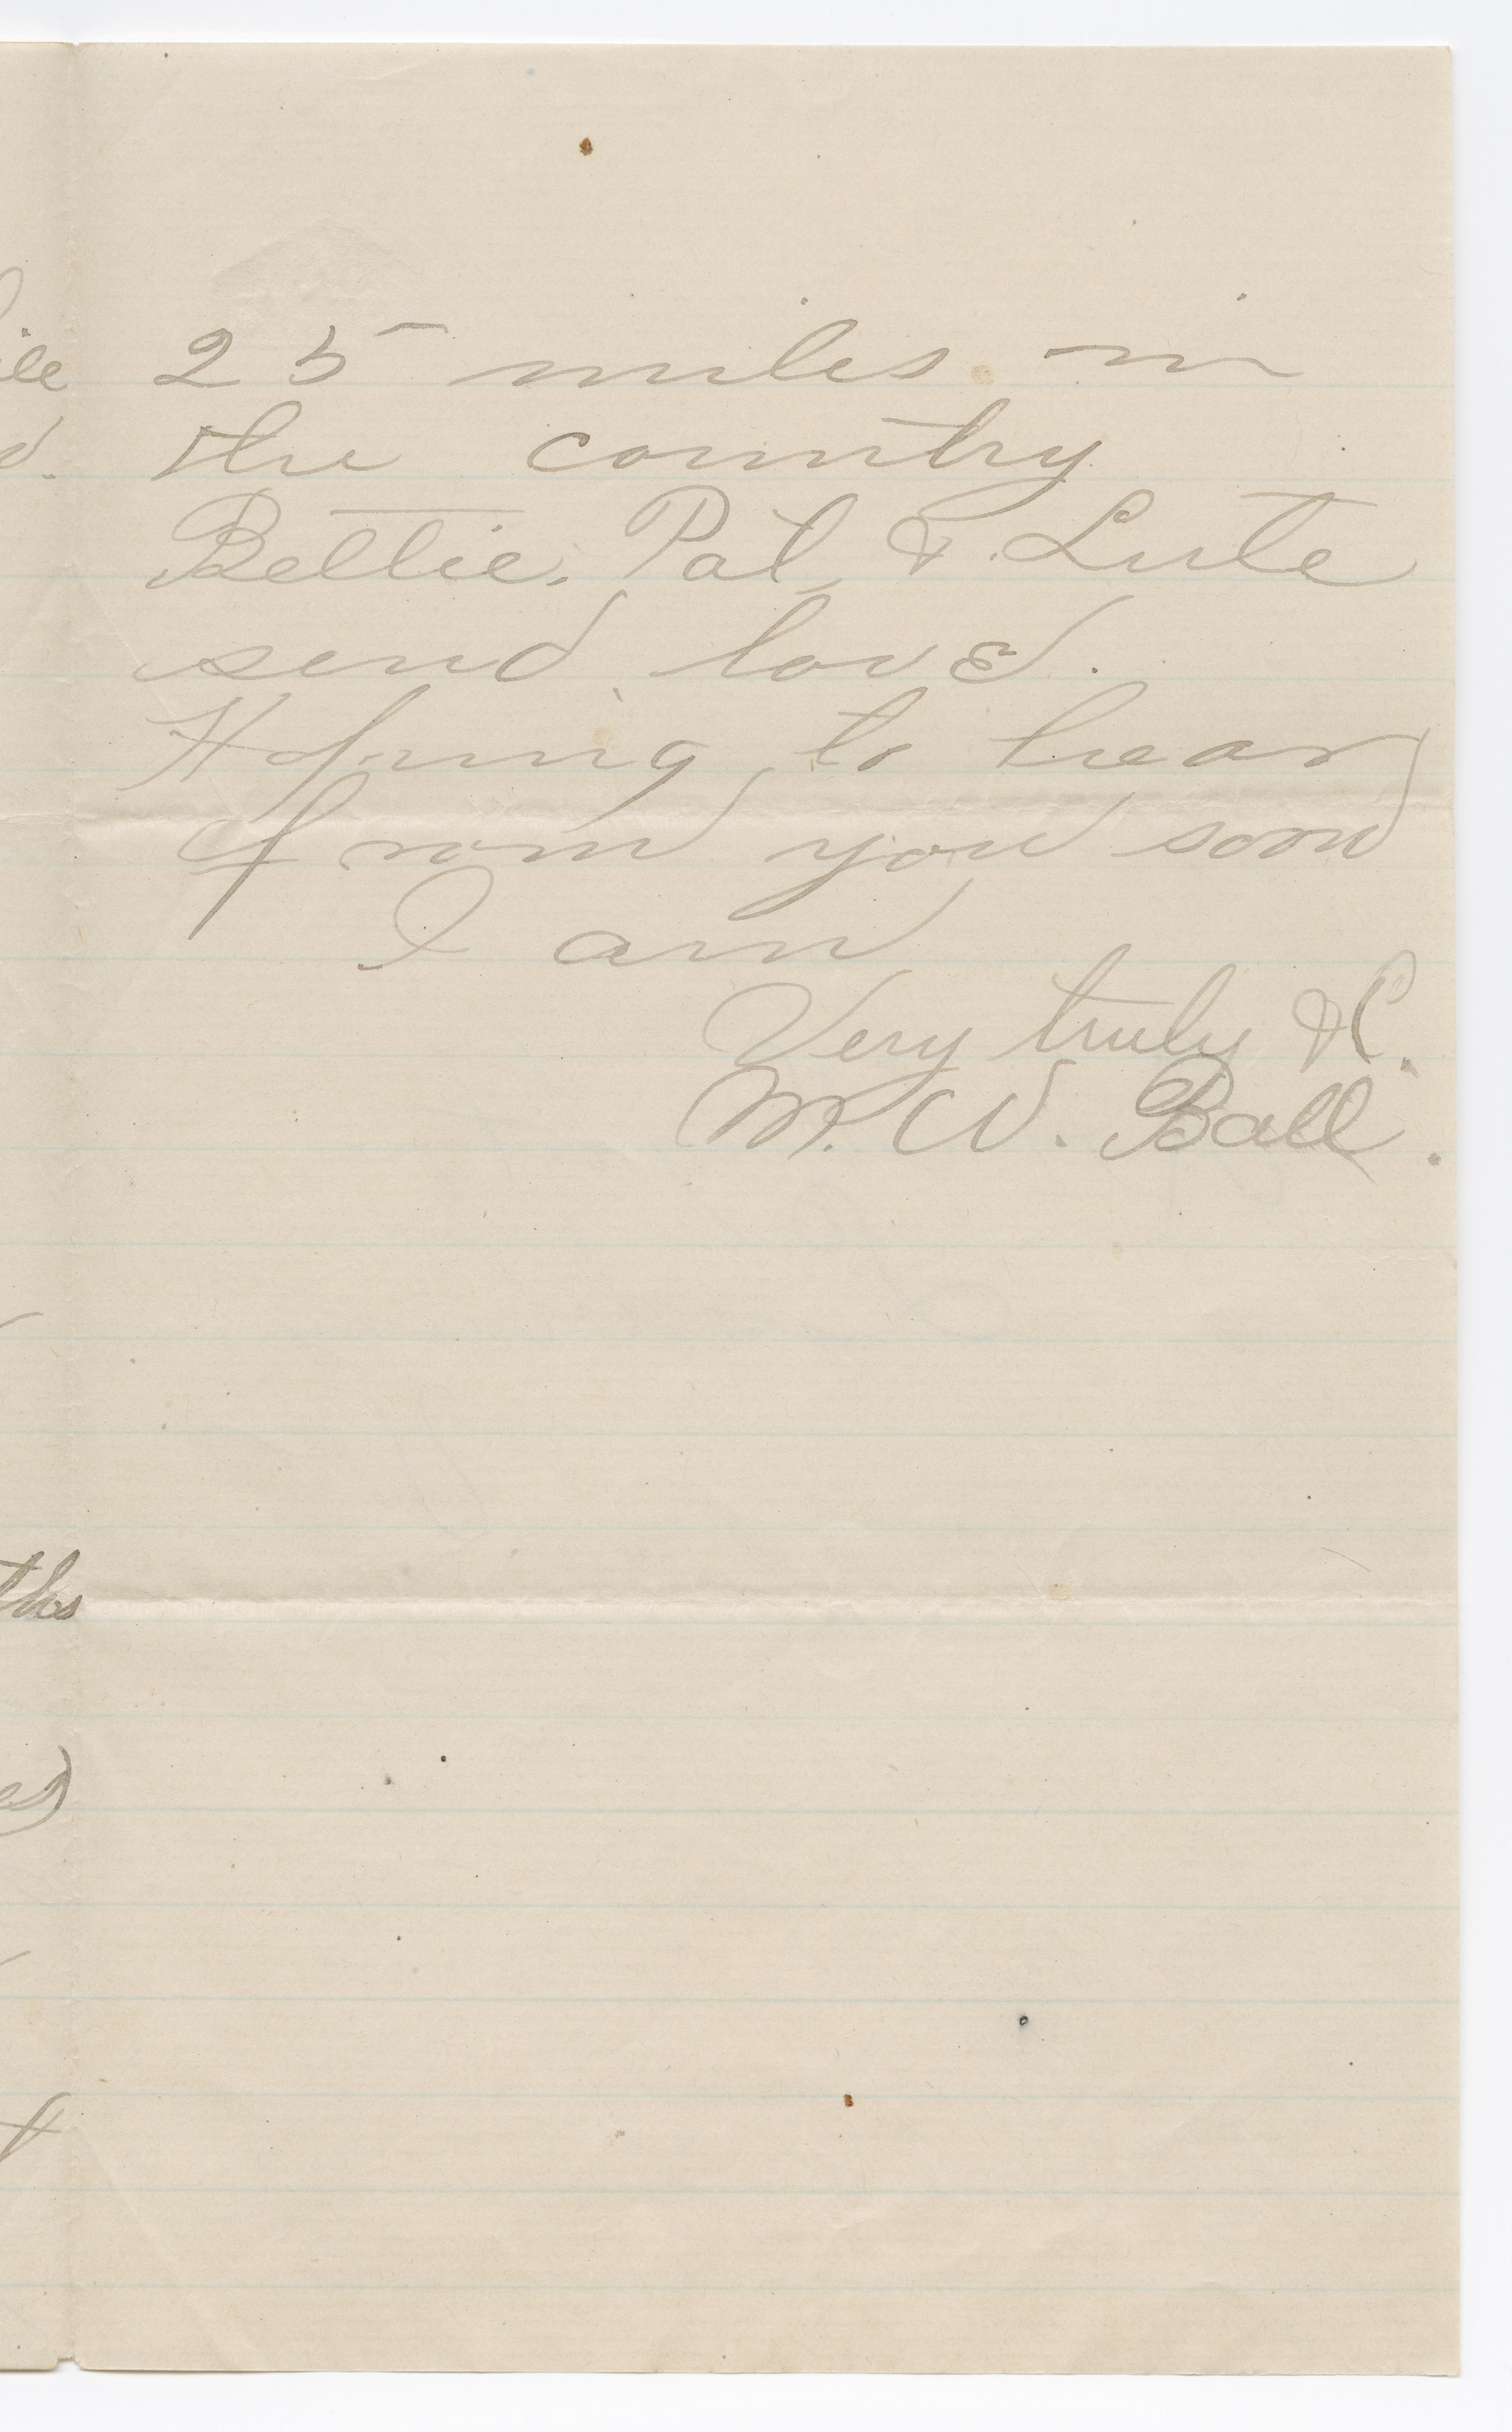 25 miles in
the country
Bettie, Pat, & Lute
send love.
Hoping to hear
from you soon
I am
Very truly &C.
M. W. Ball.
ths